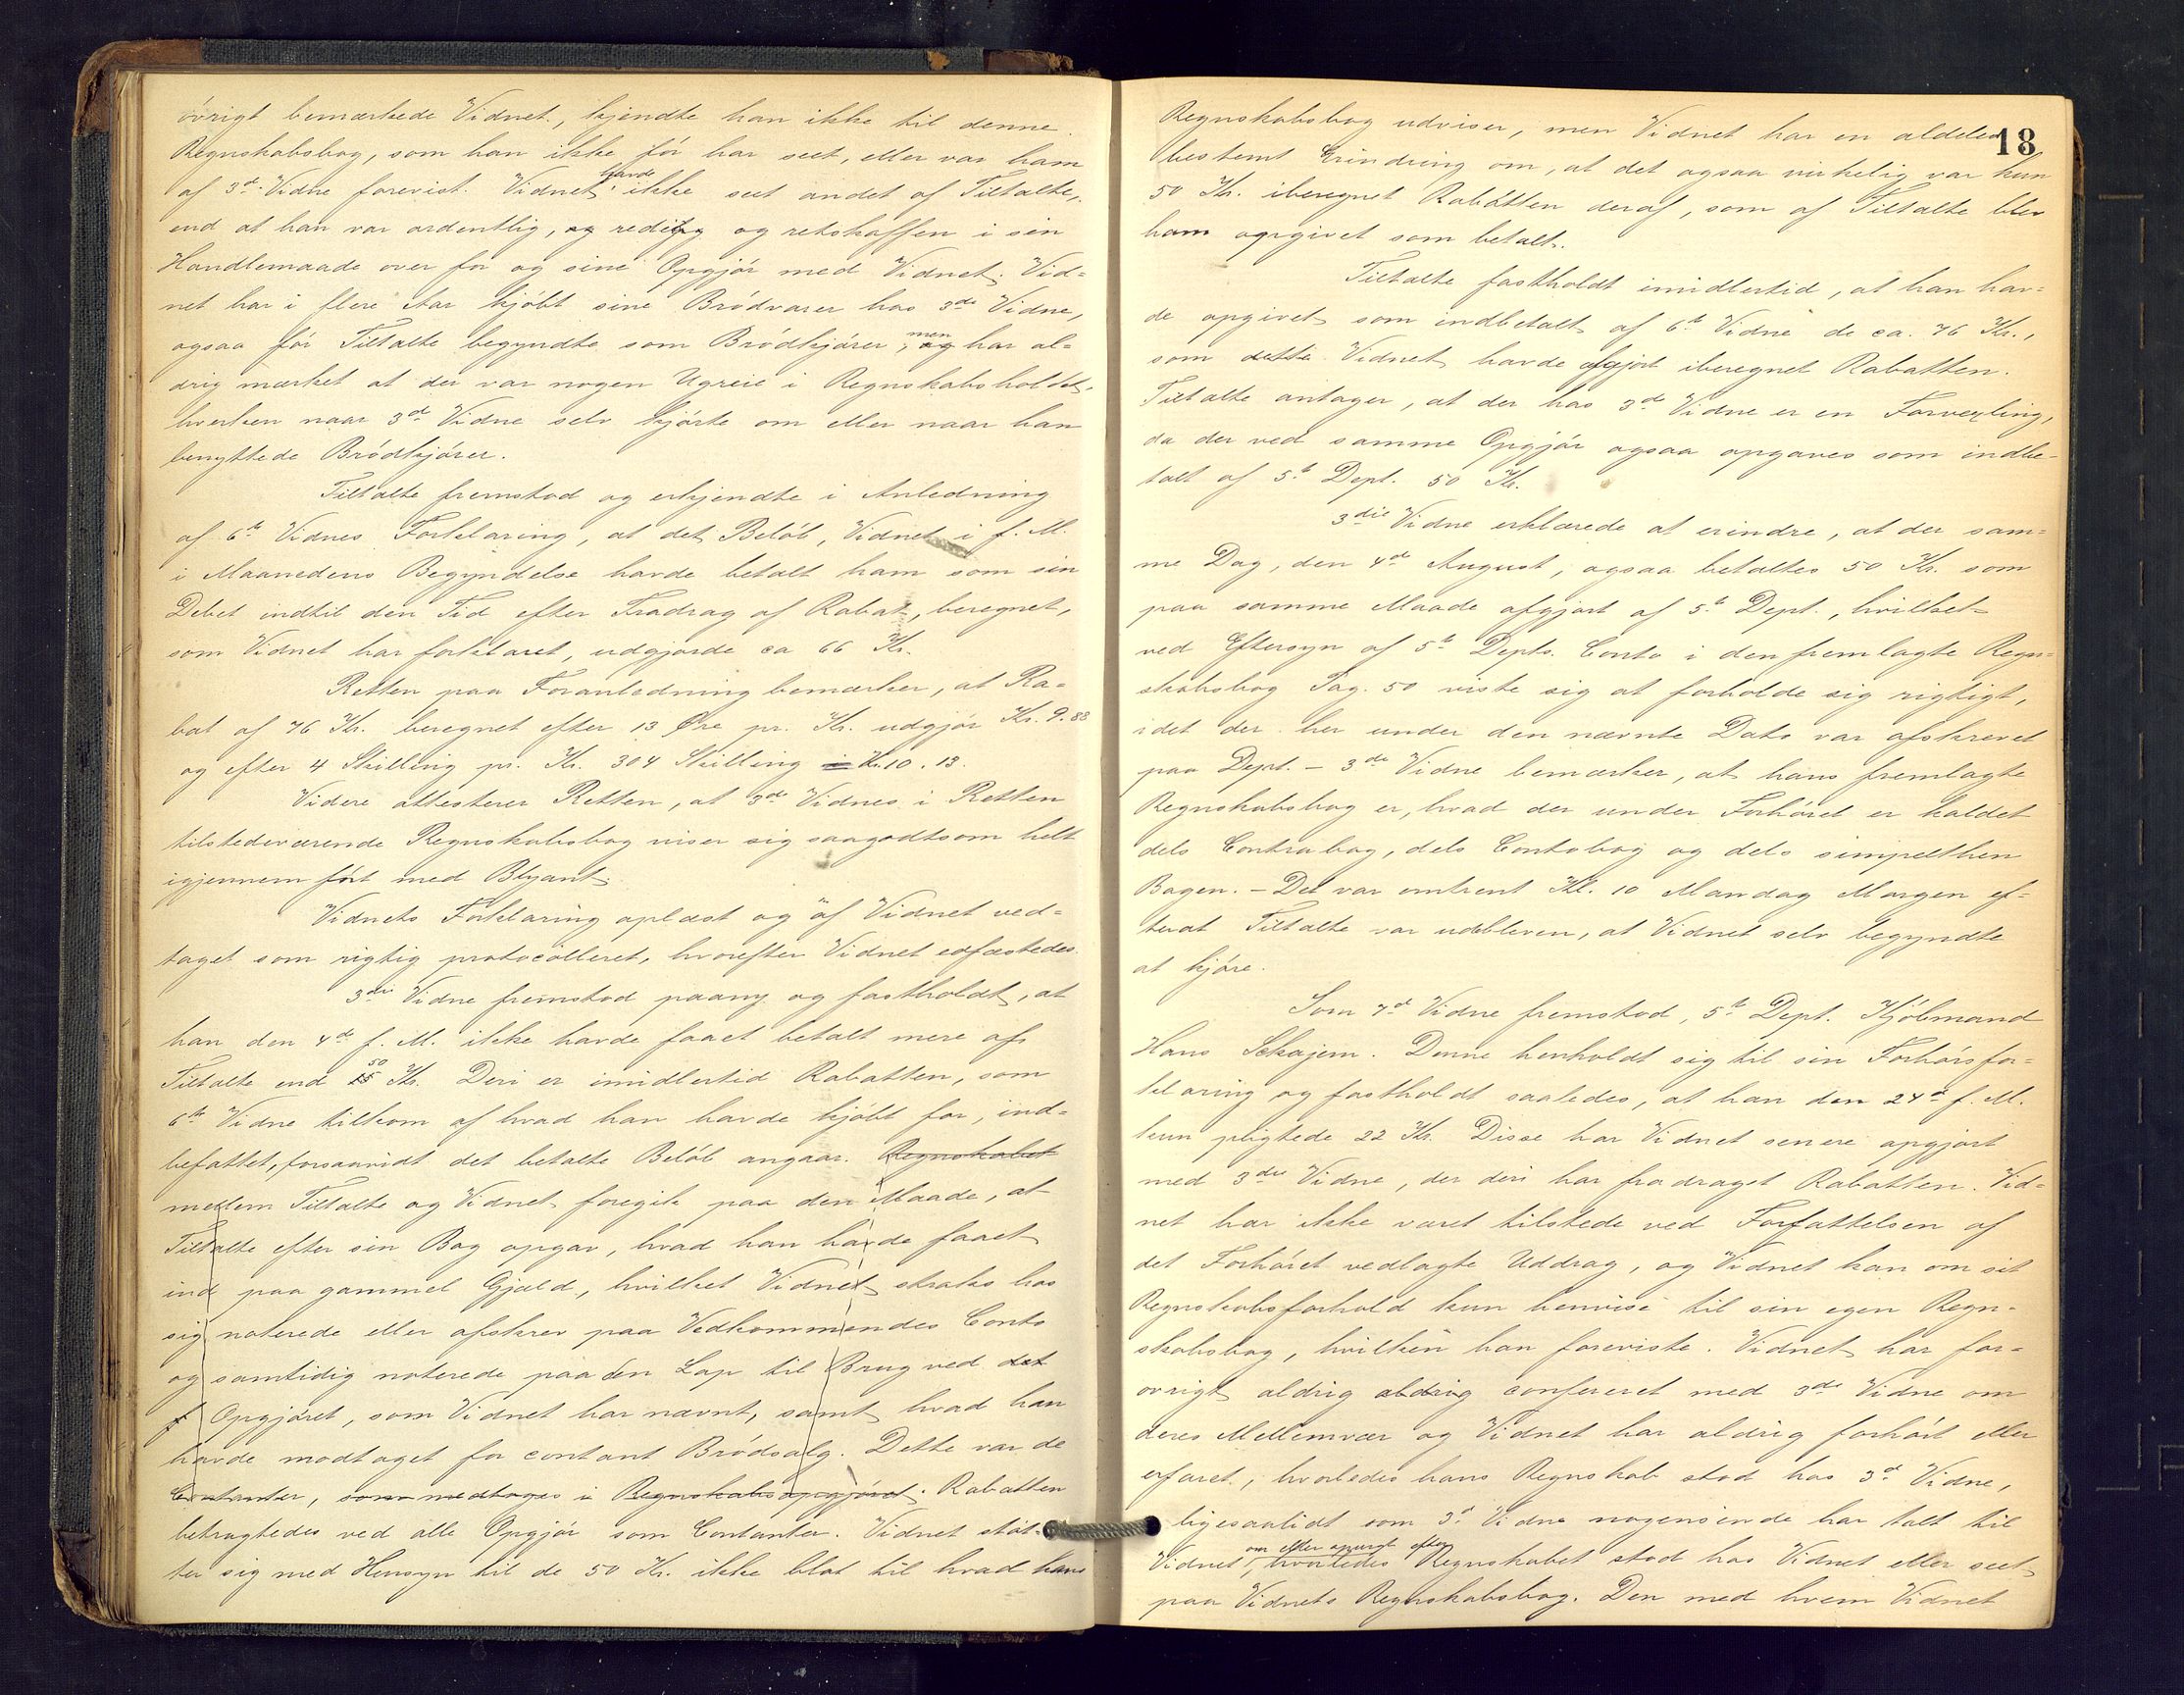 övrigt bemærkede Vidnet, kjendte han ikke til denne
Regnskabsbog, som han ikke för har seet, eller var ham
af 3d Vidne forevist. Vidnet havde ikke seet andet af Tiltalte,
end at han var ordentlig, og redelig og retskaffen i sin
Handlemaade over for og sine Opgjör med Vidnet. Vid-
net har i flere Aar kjöbt sine Brödvarer hos 3die Vidne,
ogsaa för Tiltalte begyndte som Brödkjörer, og men har al-
drig mærket at der var nogen Ugreie i Regnskabsholdet,
hverken naar 3d Vidne selv kjörte om eller naar han
benyttede Brödkjörer.
Tiltalte fremstod og erkjendte i Anledning
af 6te Vidnes Forklaring, at det Belöb, Vidnet i f. M.
i Maanedens Begyndelse havde betalt ham som sin
Debet indtil den Tid efter Fradrag af Rabat, beregnet,
som Vidnet har forklaret, udgjorde ca 66 Kr.
Retten paa Foranledning bemærker, at Ra-
bat af 76 Kr. beregnet efter 13 Øre pr. Kr. udgjör Kr. 9.88
og efter 4 Skilling pr. Kr. 304 Skilling = Kr. 10.13.
Videre attesterer Retten, at 3die Vidnes i Retten
tilstedeværende Regnskabsbog viser sig saagodtsom helt
igjennem fört med Blyant.
Vidnets Forklaring oplæst og af Vidnet ved-
taget som rigtig protocolleret, hvorefter Vidnet edfæstedes.
3die Vidne fremstod paany og fastholdt, at
han den 4de f. M. ikke havde faaet betalt mere af
Tiltalte end 50 Kr. Deri er imidlertid Rabatten, som
6te Vidne tilkom af hvad han havde kjöbt for, ind-
befattet, forsaavidt det betalte Belöb angaar. Regnskabet
mellem Tiltalte og Vidnet foregik paa den Maade, at
Tiltalte efter sin Bog opgav, hvad han havde faaet
ind paa gammel Gjæld, hvilket Vidnet straks hos
sig noterede eller afskrev paa Vedkommendes Conto
og samtidig noterede paa den Lap til Brug ved det
Opgjöret, som Vidnet har nævnt, samt hvad han
havde modtaget for contant Brödsalg. Dette var de
Contanter, som medtoges i Regnskabsopgjöret. Rabatten
betragtedes ved alle Opgjör som Contanter. Vidnet stöt-
ter sig med Hensyn til de 50 Kr. ikke blot til hvad hans
18
Regnskabsbog udviser, men Vidnet har en aldeles
bestemt Erindring om, at det ogsaa virkelig var kun
50 Kr. iberegnet Rabatten deraf, som af Tiltalte blev
ham opgivet som betalt.
Tiltalte fastholdt imidlertid, at han hav-
de opgivet som indbetalt af 6te Vidne de ca. 76 Kr.,
som dette Vidnet havde afgjort iberegnet Rabatten.
Tiltalte antager, at der hos 3die Vidne er en Forvexling,
da der ved samme Opgjör ogsaa opgaves som indbe-
talt af 5te Dept. 50 Kr.
3die Vidne erklærede at erindre, at der sam-
me Dag, den 4de August, ogsaa betaltes 50 Kr. som
paa samme Maade afgjort af 5te Dept., hvilket
ved Eftersyn af 5te Depts. Conto i den fremlagte Regn-
skabsbog Pag. 50 viste sig at forholde sig rigtigt,
idet der her under den nævnte Dato var afskrevet
paa Dept. - 3die Vidne bemærker, at hans fremlagte
Regnskabsbog er, hvad der under Forhöret er kaldet
dels Contrabog, dels Contobog og dels simpelthen
Bogen. - Det var omtrent Kl. 10 Mandag Morgen ef-
terat Tiltalte var udebleven, at Vidnet selv begyndte
at kjöre.
Som 7d Vidne fremstod, 5te Dept. Kjöbmand
Hans Sckajem. Denne henholdt sig til sin Forhörsfor-
klaring og fastholdt saaledes, at han den 24d f. M.
kun pligtede 22 Kr. Disse har Vidnet senere opgjort
med 3die Vidne, der deri har fradraget Rabatten. Vid-
net har ikke været tilstede ved Forfattelsen af
det Forhöret vedlagte Uddrag, og Vidnet kan om sit
Regnskabsforhold kun henvise til sin egen Regn-
skabsbog, hvilken han foreviste. Vidnet har for-
övrigt aldrig aldrig confereret med 3die Vidne om
deres Mellemvær og Vidnet har aldrig forhört eller
erfaret, hvorledes hans Regnskab stod hos 3d Vidne,
ligesaalidt som 3d Vidne nogensinde har talt til
Vidnet om eller spurgt efter, hvorledes Regnskabet stod hos Vidnet eller seet
paa Vidnets Regnskabsbog. Den med hvem Vidnet